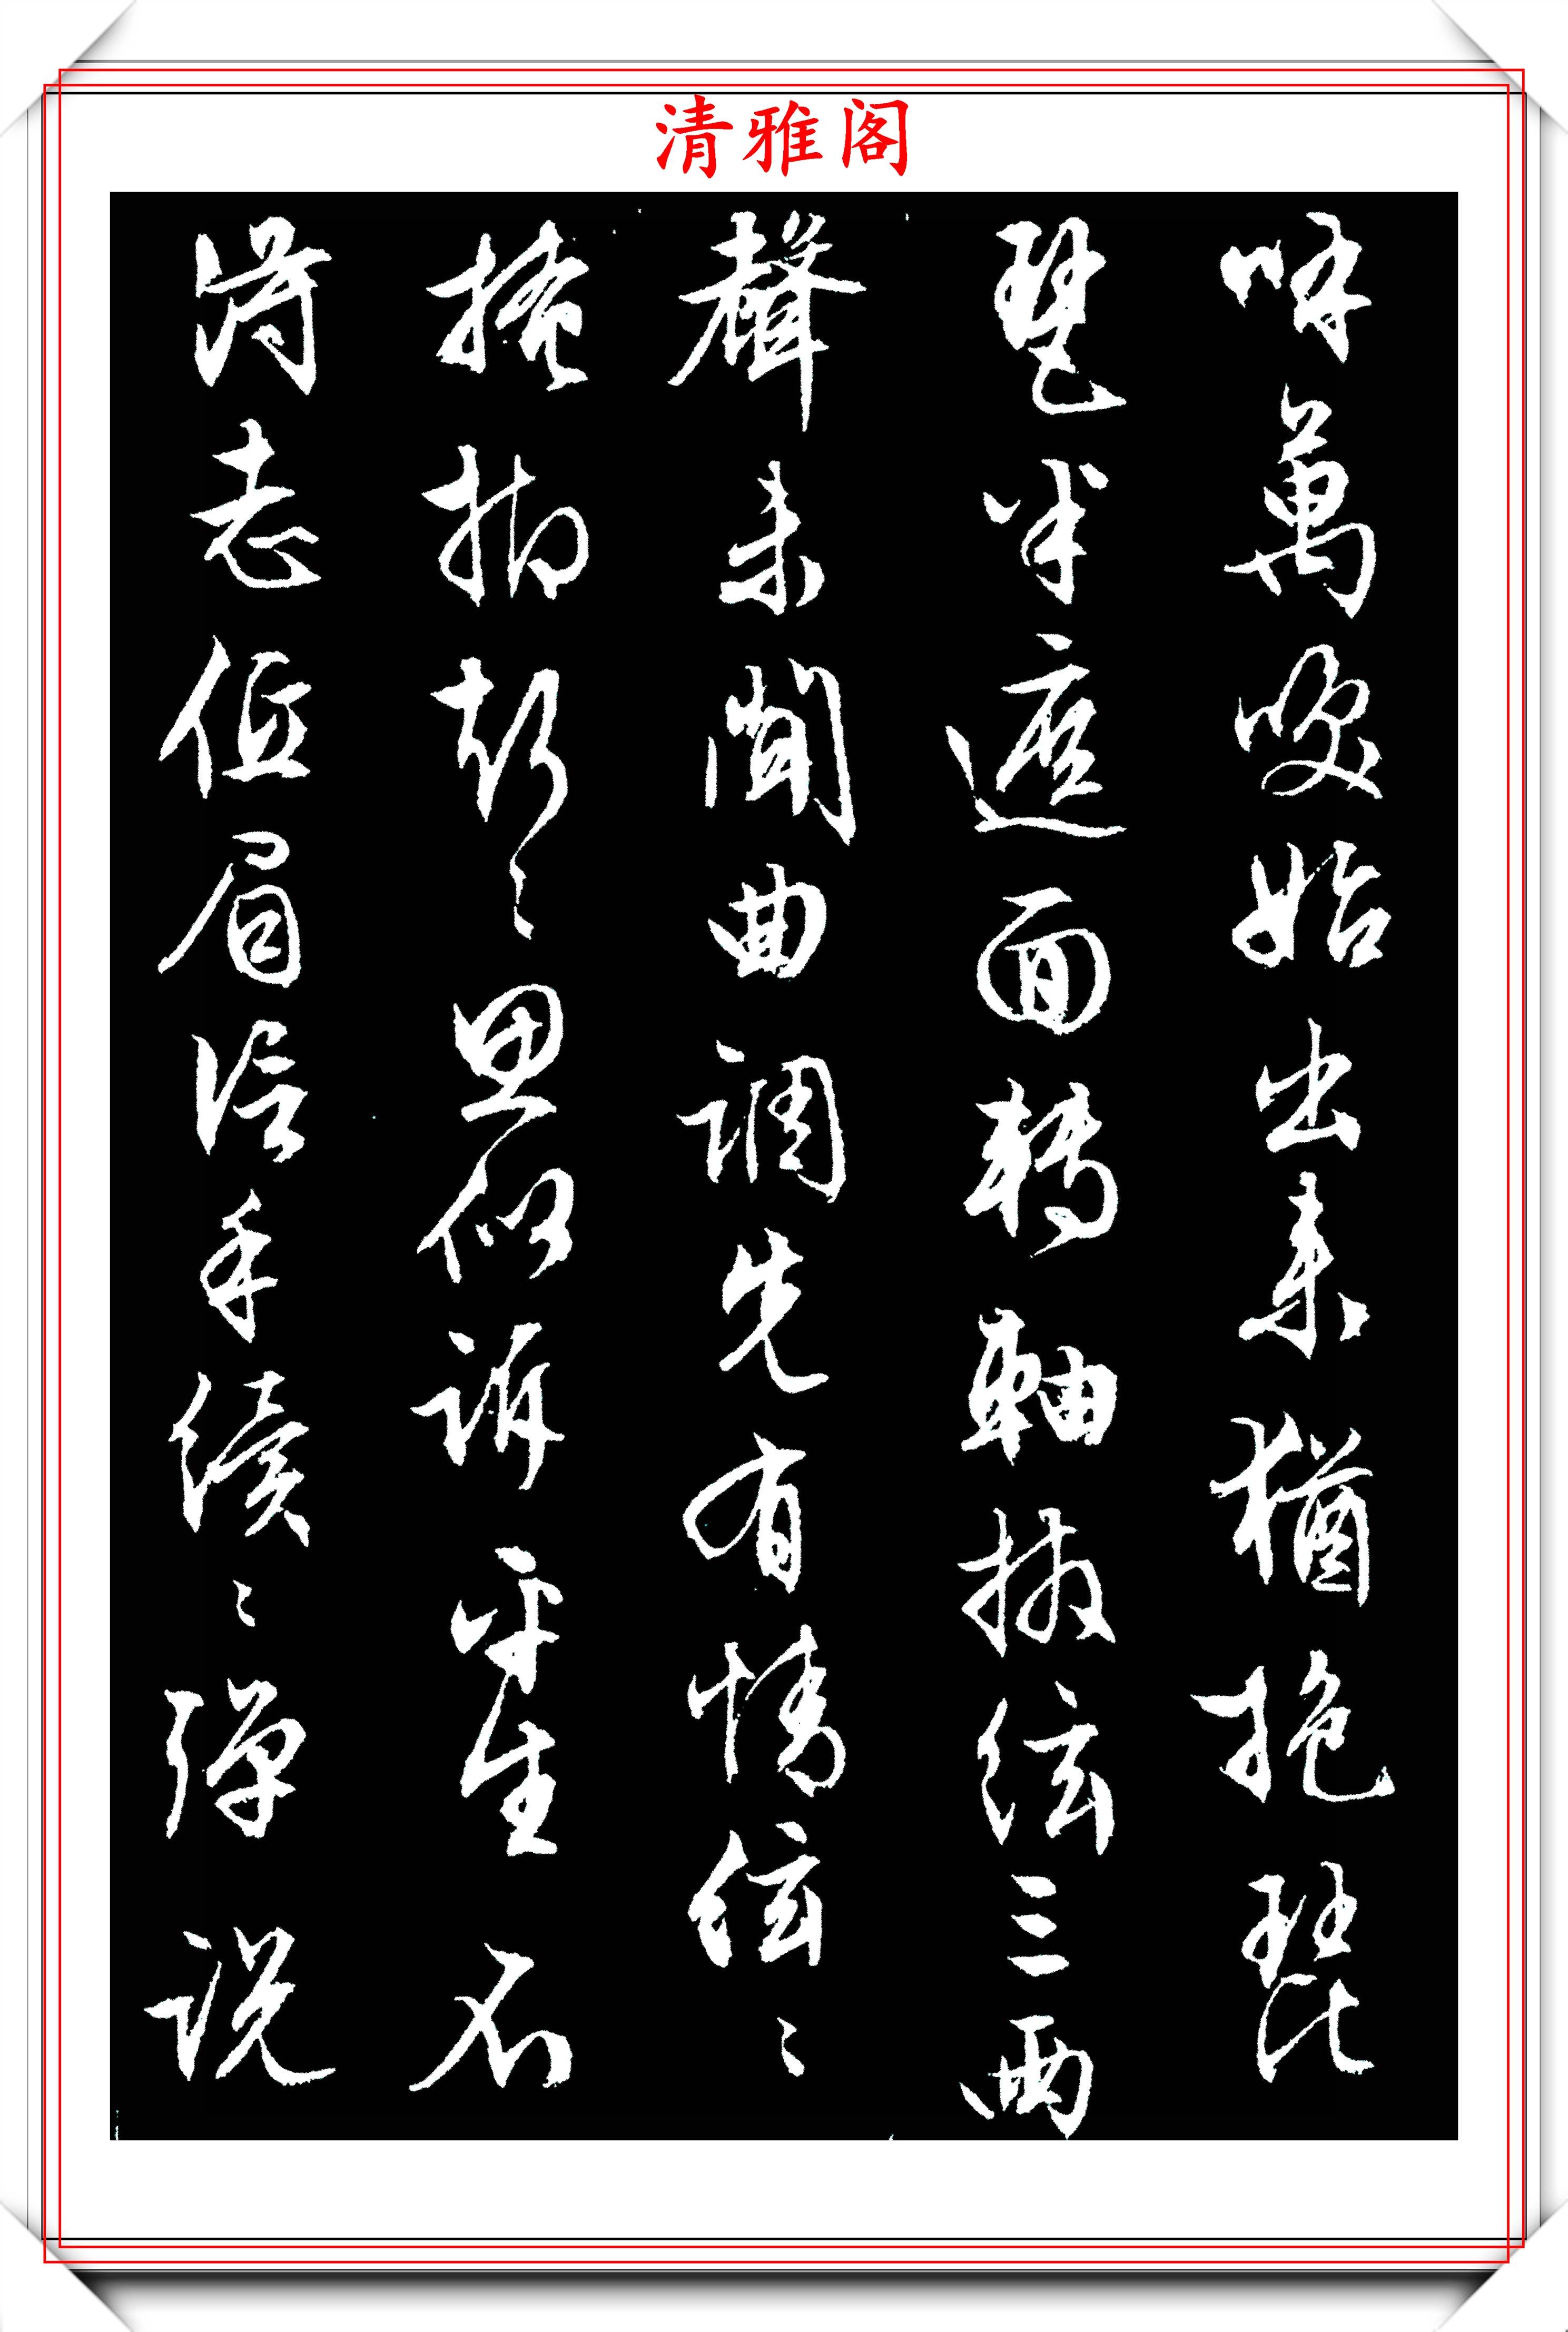 清雅阁
呼萬喚始出来猶抱琵
琶半遮面轉軸撥絃三兩
聲未聞曲調先有情絃〻
掩抑聲〻思似訴平生不
得志低眉信手續〻彈説